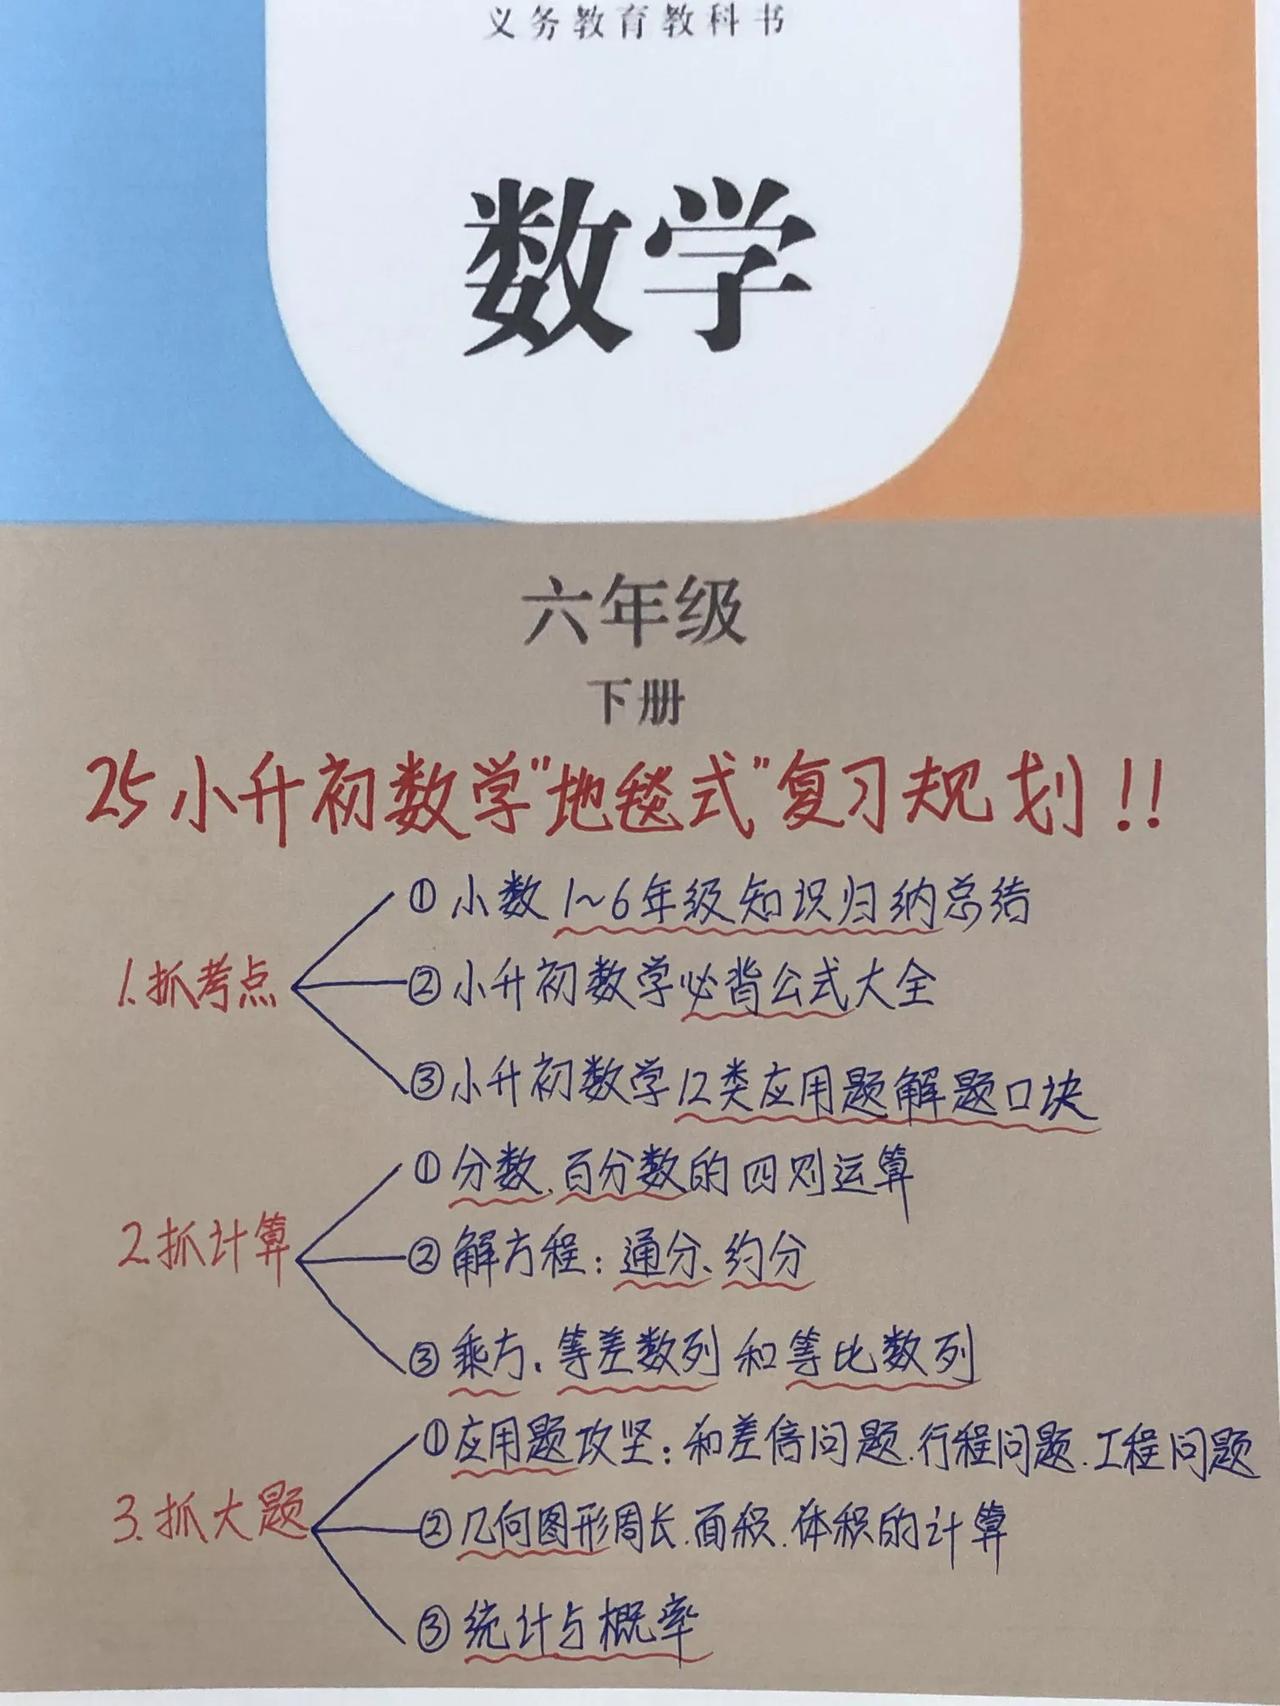 义务教育教科书
数学
六年级
下册
25小升初数学"地毯式"复习规划!!
①小数1~6年级知识归纳总结
1.抓考点
②小升初数学必背公式大全
③小升初数学12类应用题解题口块
①分数、百分数的四则运算
2.抓计算
②解方程:通分、约分
③乘方、等差数列和等比数列
①应用题攻坚:和差倍问题.行程问题.工程问题
3.抓大题
②几何图形周长.面积.体积的计算
③统计与概率